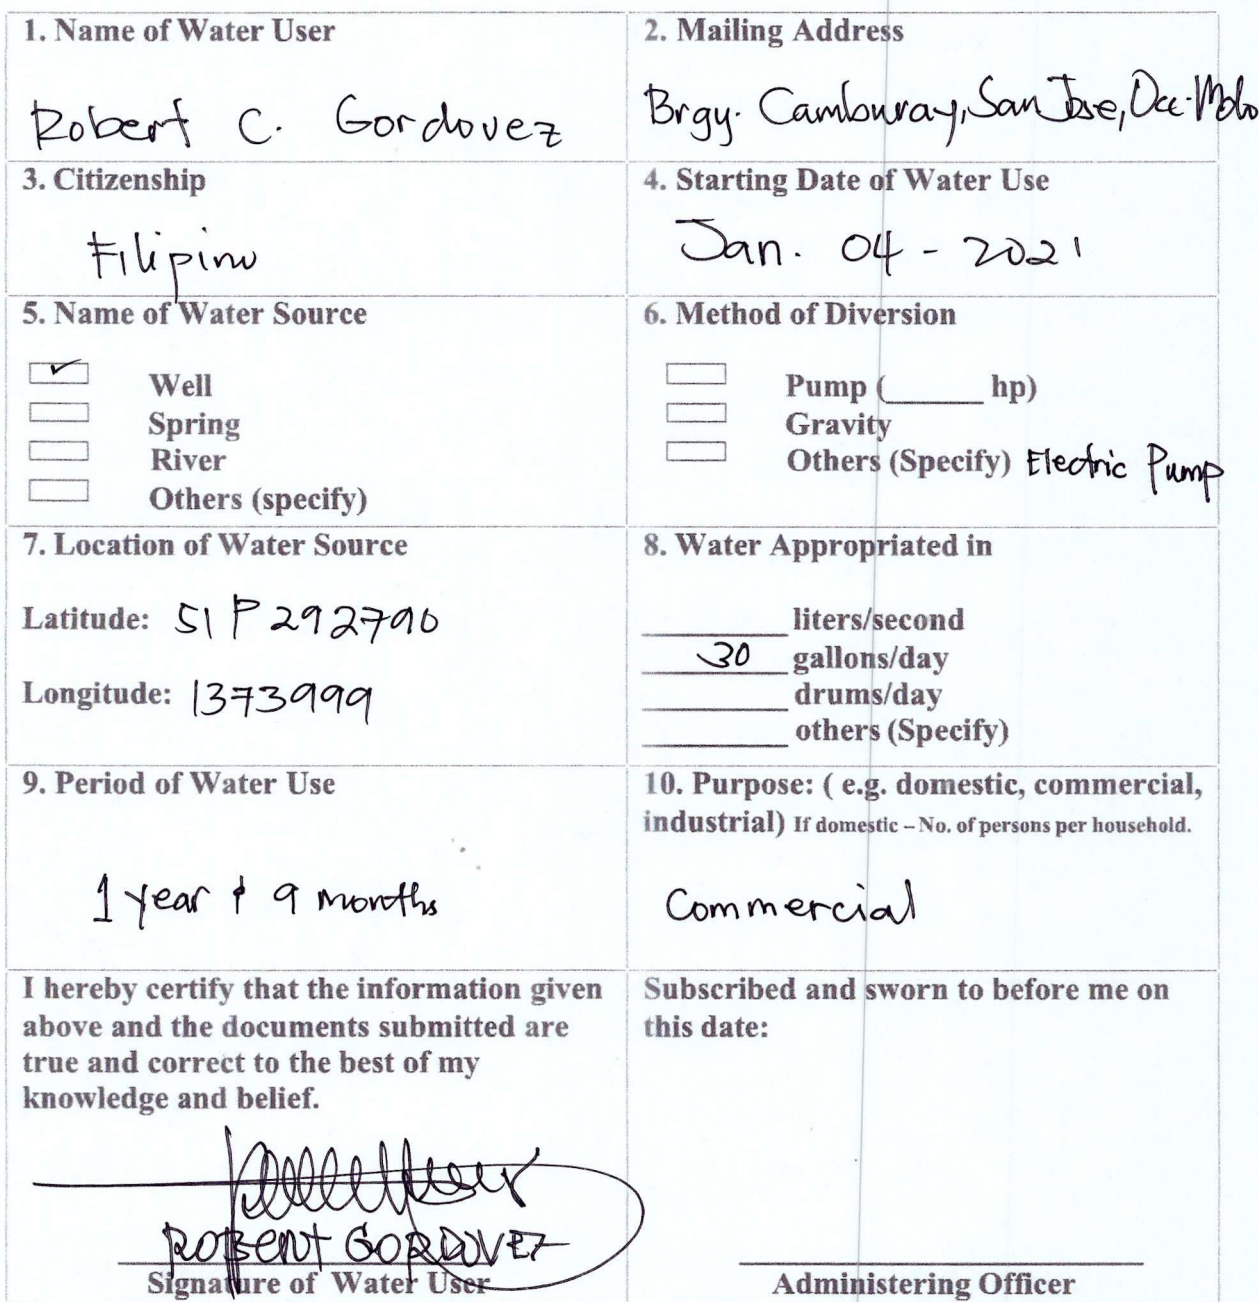 1. Name of Water User
Robert C. Gordovez
2. Mailing Address
Brgy. Camburay, San Jose, Occ. Mdo
3. Citizenship
Filipino
4. Starting Date of Water Use
Jan. 04 - 2021
5. Name of Water Source
Well
Spring
River
Others (specify)
6. Method of Diversion
Pump (______ hp)
Gravity
Others (Specify) Electric Pump
7. Location of Water Source
Latitude: 51 P 292790
Longitude: 1373999
8. Water Appropriated in
liters/second
30 gallons/day
drums/day
others (Specify)
9. Period of Water Use
1 year & 9 months
10. Purpose: ( e.g. domestic, commercial,
industrial) If domestic – No. of persons per household.
Commercial
I hereby certify that the information given
above and the documents submitted are
true and correct to the best of my
knowledge and belief.
ROBERT GORDOVEZ
Signature of Water User
Subscribed and sworn to before me on
this date:
Administering Officer